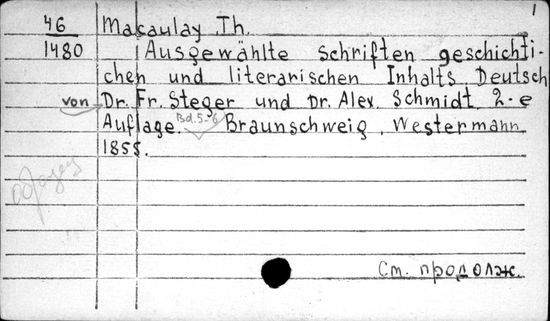 1
46 Macaulay, Th.
1480 Ausgewählte schriften geschichti-
chen und literarischen Inhalts Deutsch
von Dr. Fr. Steger und Dr. Alex. Schmidt. 2-e
Auflage. Bd.5-6 Braunschweig, Westermann
1855.
См. продолж.